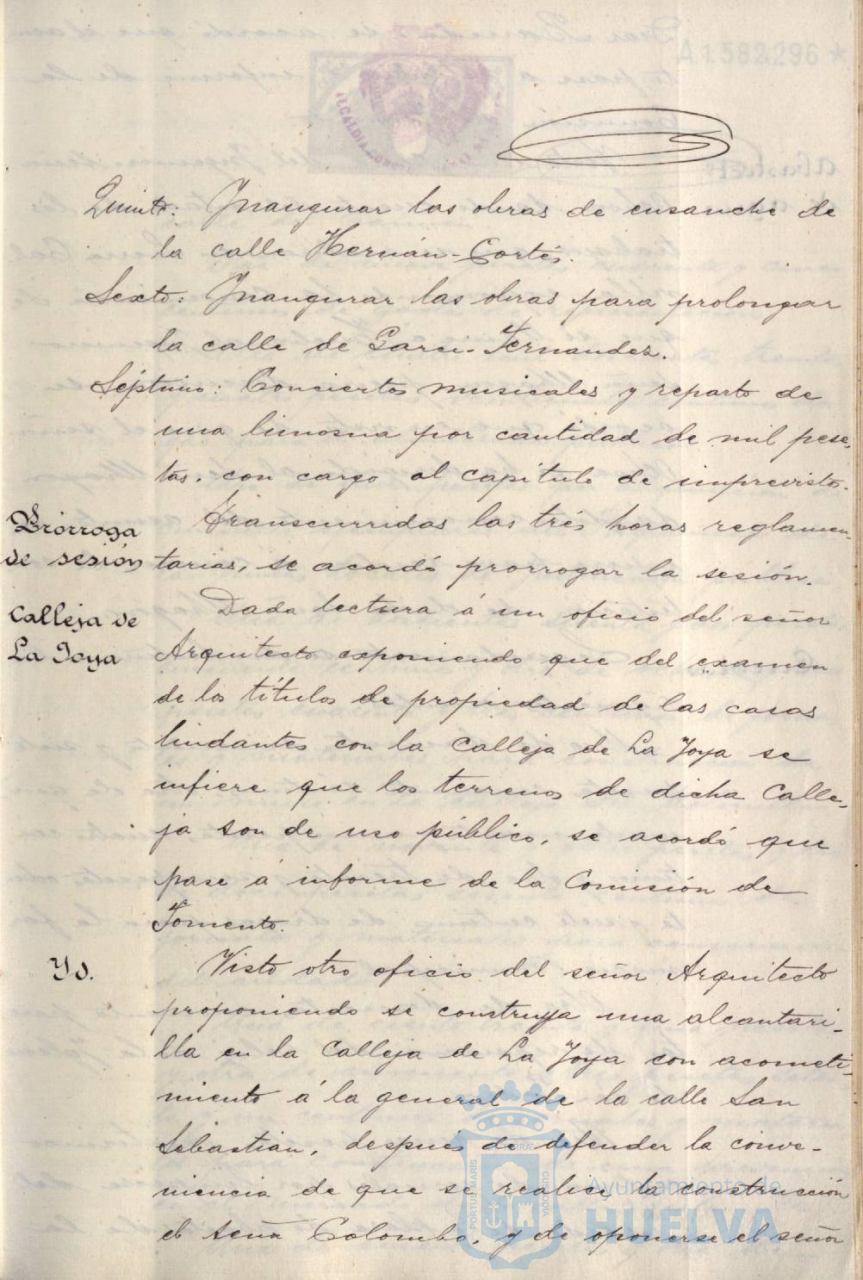 A1582296 *
Quinto: Inaugurar las obras de ensanche de
la calle Hernán-Cortés.
Sexto: Inaugurar las obras para prolongar
la calle de Garci-Fernandez.
Séptimo: Conciertos musicales y reparto de
una limosna por cantidad de mil pese-
tas, con cargo al capítulo de imprevistos.
Prórroga
de sesión
Transcurridas las trés horas reglamen-
tarias, se acordó prorrogar la sesión.
Calleja de
La Joya
Dada lectura á un oficio del señor
Arquitecto exponiendo que del examen
de los títulos de propiedad de las casas
lindantes con la Calleja de La Joya se
infiere que los terrenos de dicha Calle-
ja son de uso público, se acordó que
pase á informe de la Comisión de
Fomento.
Yd.
Visto otro oficio del señor Arquitecto
proponiendo se construya una alcantari-
lla en la Calleja de La Joya con acometi-
miento á la general de la calle San
Sebastian, después de defender la conve-
niencia de que se realice la construcción
el señor Colombo, y de oponerse el señor
PORTUS MARIS
Ayuntamiento de
HUELVA